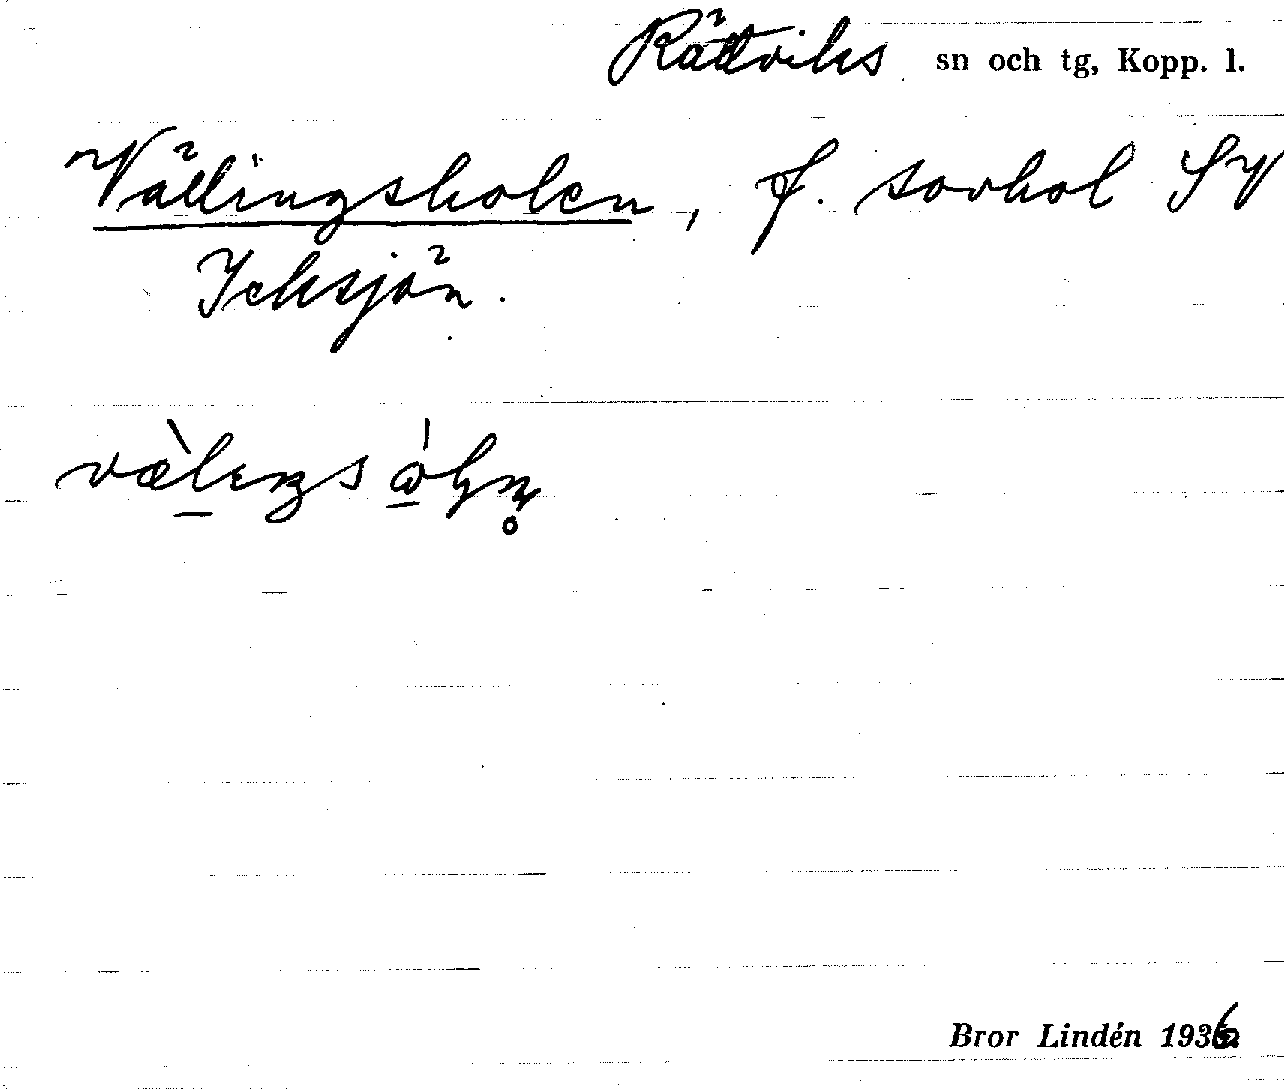 Rättviks sn och tg, Kopp. l.
Vällingsholen, f. torhol SV
Icksjön.
Bror Lindén 1936